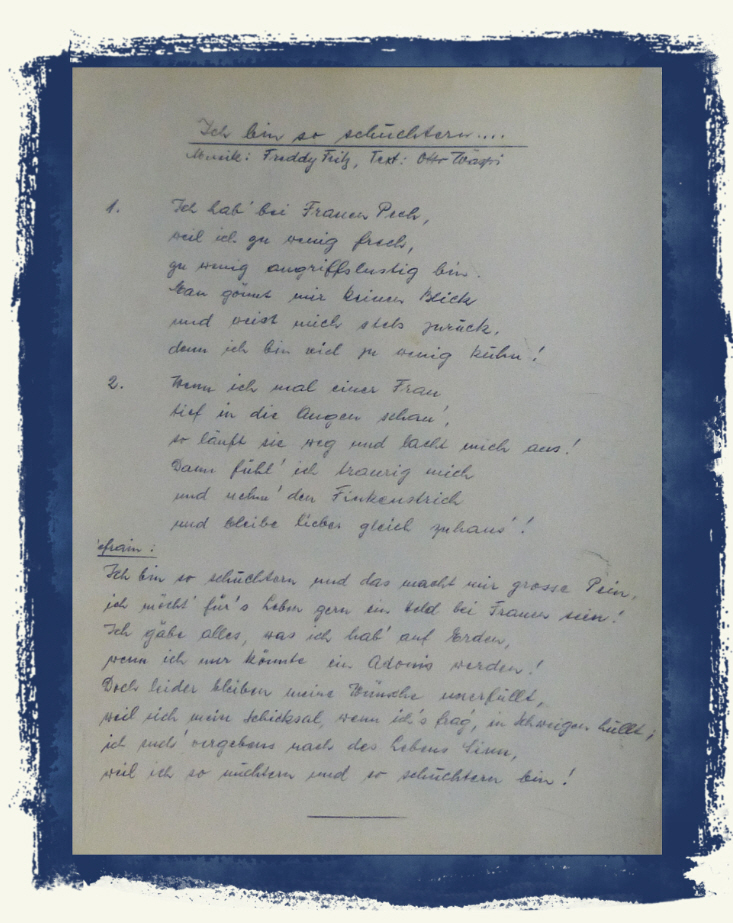 Ich bin so schüchtern....
Musik: Freddy Fritz, Text: Otto Wägri
1. Ich hab' bei Frauen Pech,
weil ich zu wenig frech,
zu wenig angriffslustig bin.
Man gönnt mir keinen Blick
und weist mich stets zurück,
denn ich bin viel zu wenig kühn!
2. Wenn ich mal einer Frau
tief in die Augen schau',
so läuft sie weg und lacht mich aus!
Dann fühl' ich traurig mich
und nehm' den Finkenstrich
und bleibe lieber gleich zuhaus'!
efrain:
Ich bin so schüchtern und das macht mir grosse Pein,
ich möcht' für's Leben gern ein Held bei Frauen sein!
Ich gäbe alles, was ich hab' auf Erden,
wenn ich nur könnte ein Adonis werden!
Doch leider bleiben meine Wünsche unerfüllt,
weil sich mein Schicksal, wenn ich's frag', in Schweigen hüllt;
ich such' vergebens nach des Lebens Sinn,
weil ich so nüchtern und so schüchtern bin!